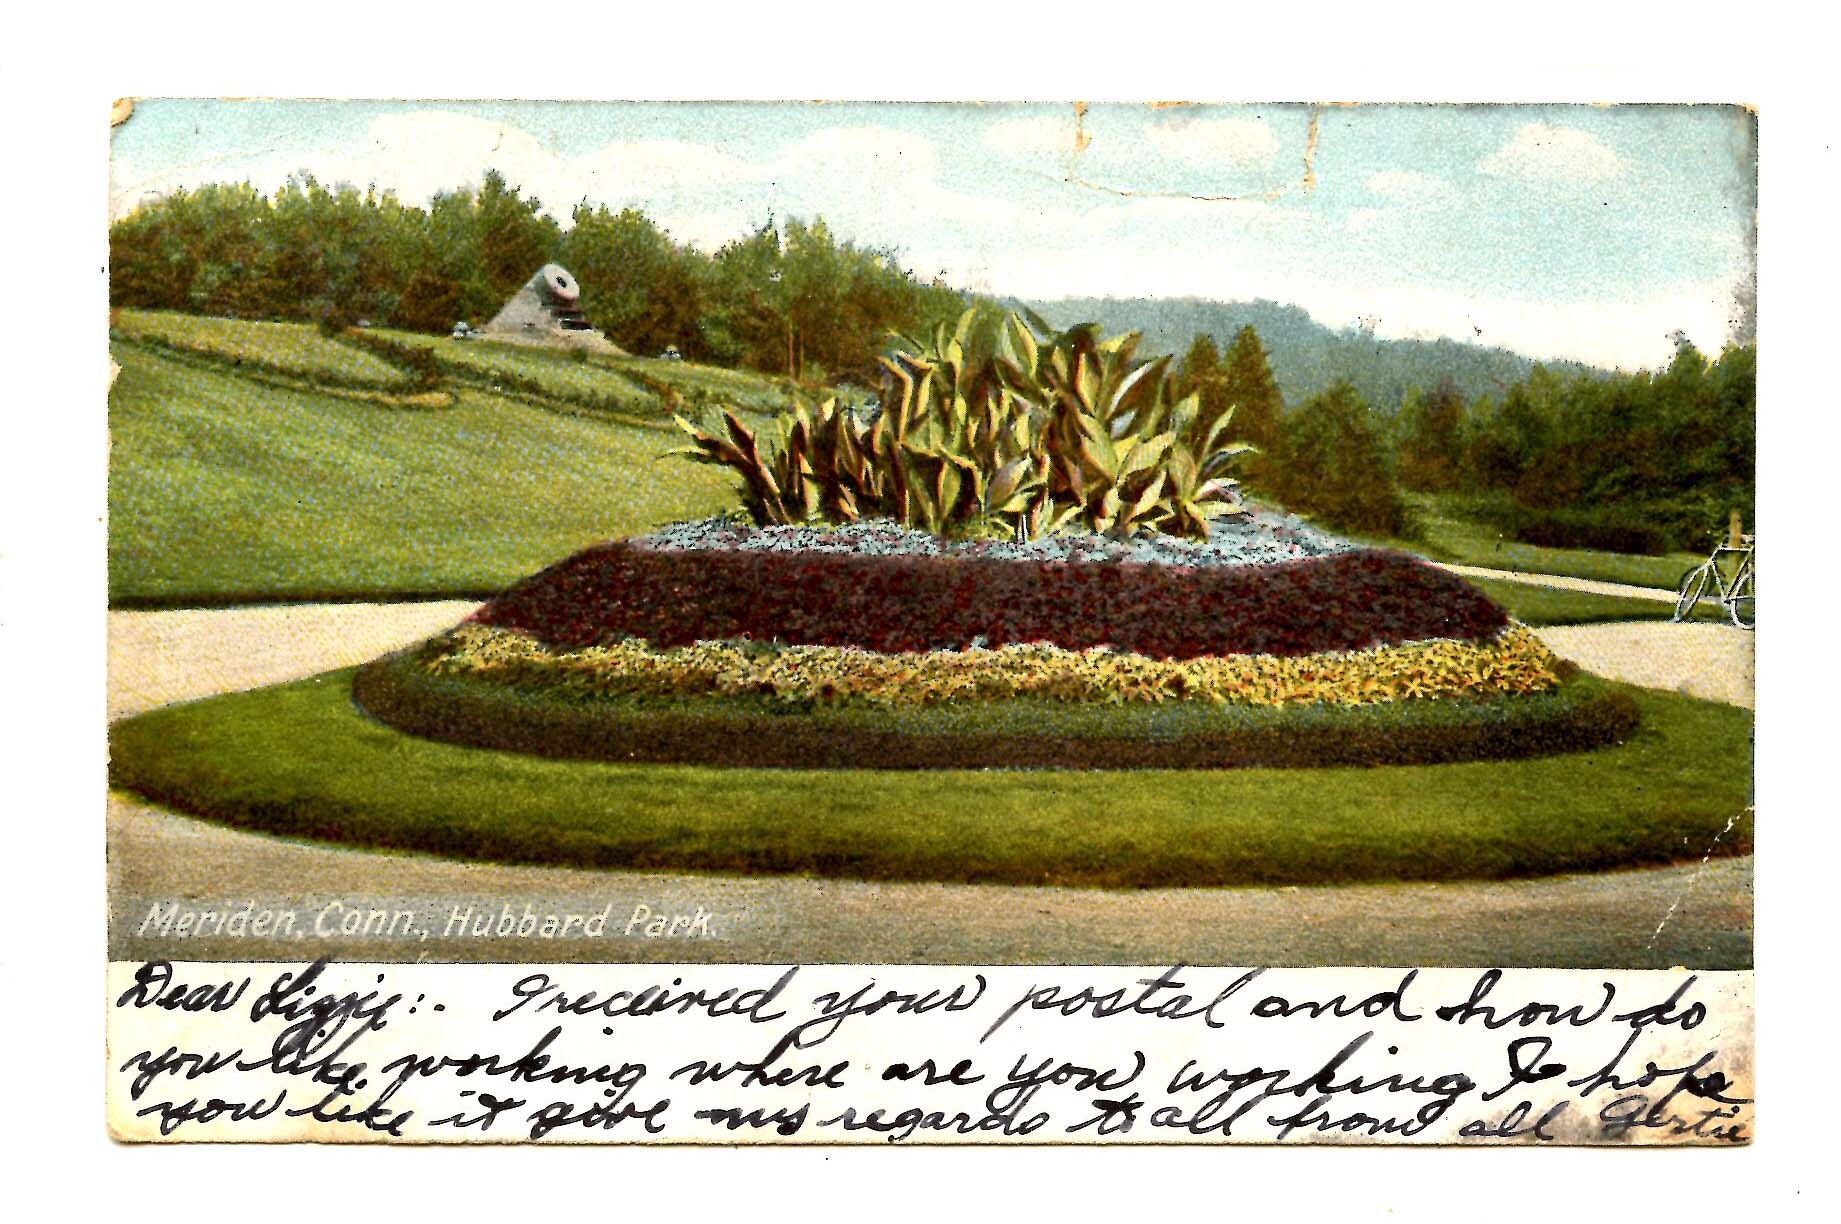 Meriden, Conn., Hubbard Park.
Dear Lizzie:. I received your postal and how do
you like working where are you working I hope
you like it give my regards to all from all Gertie